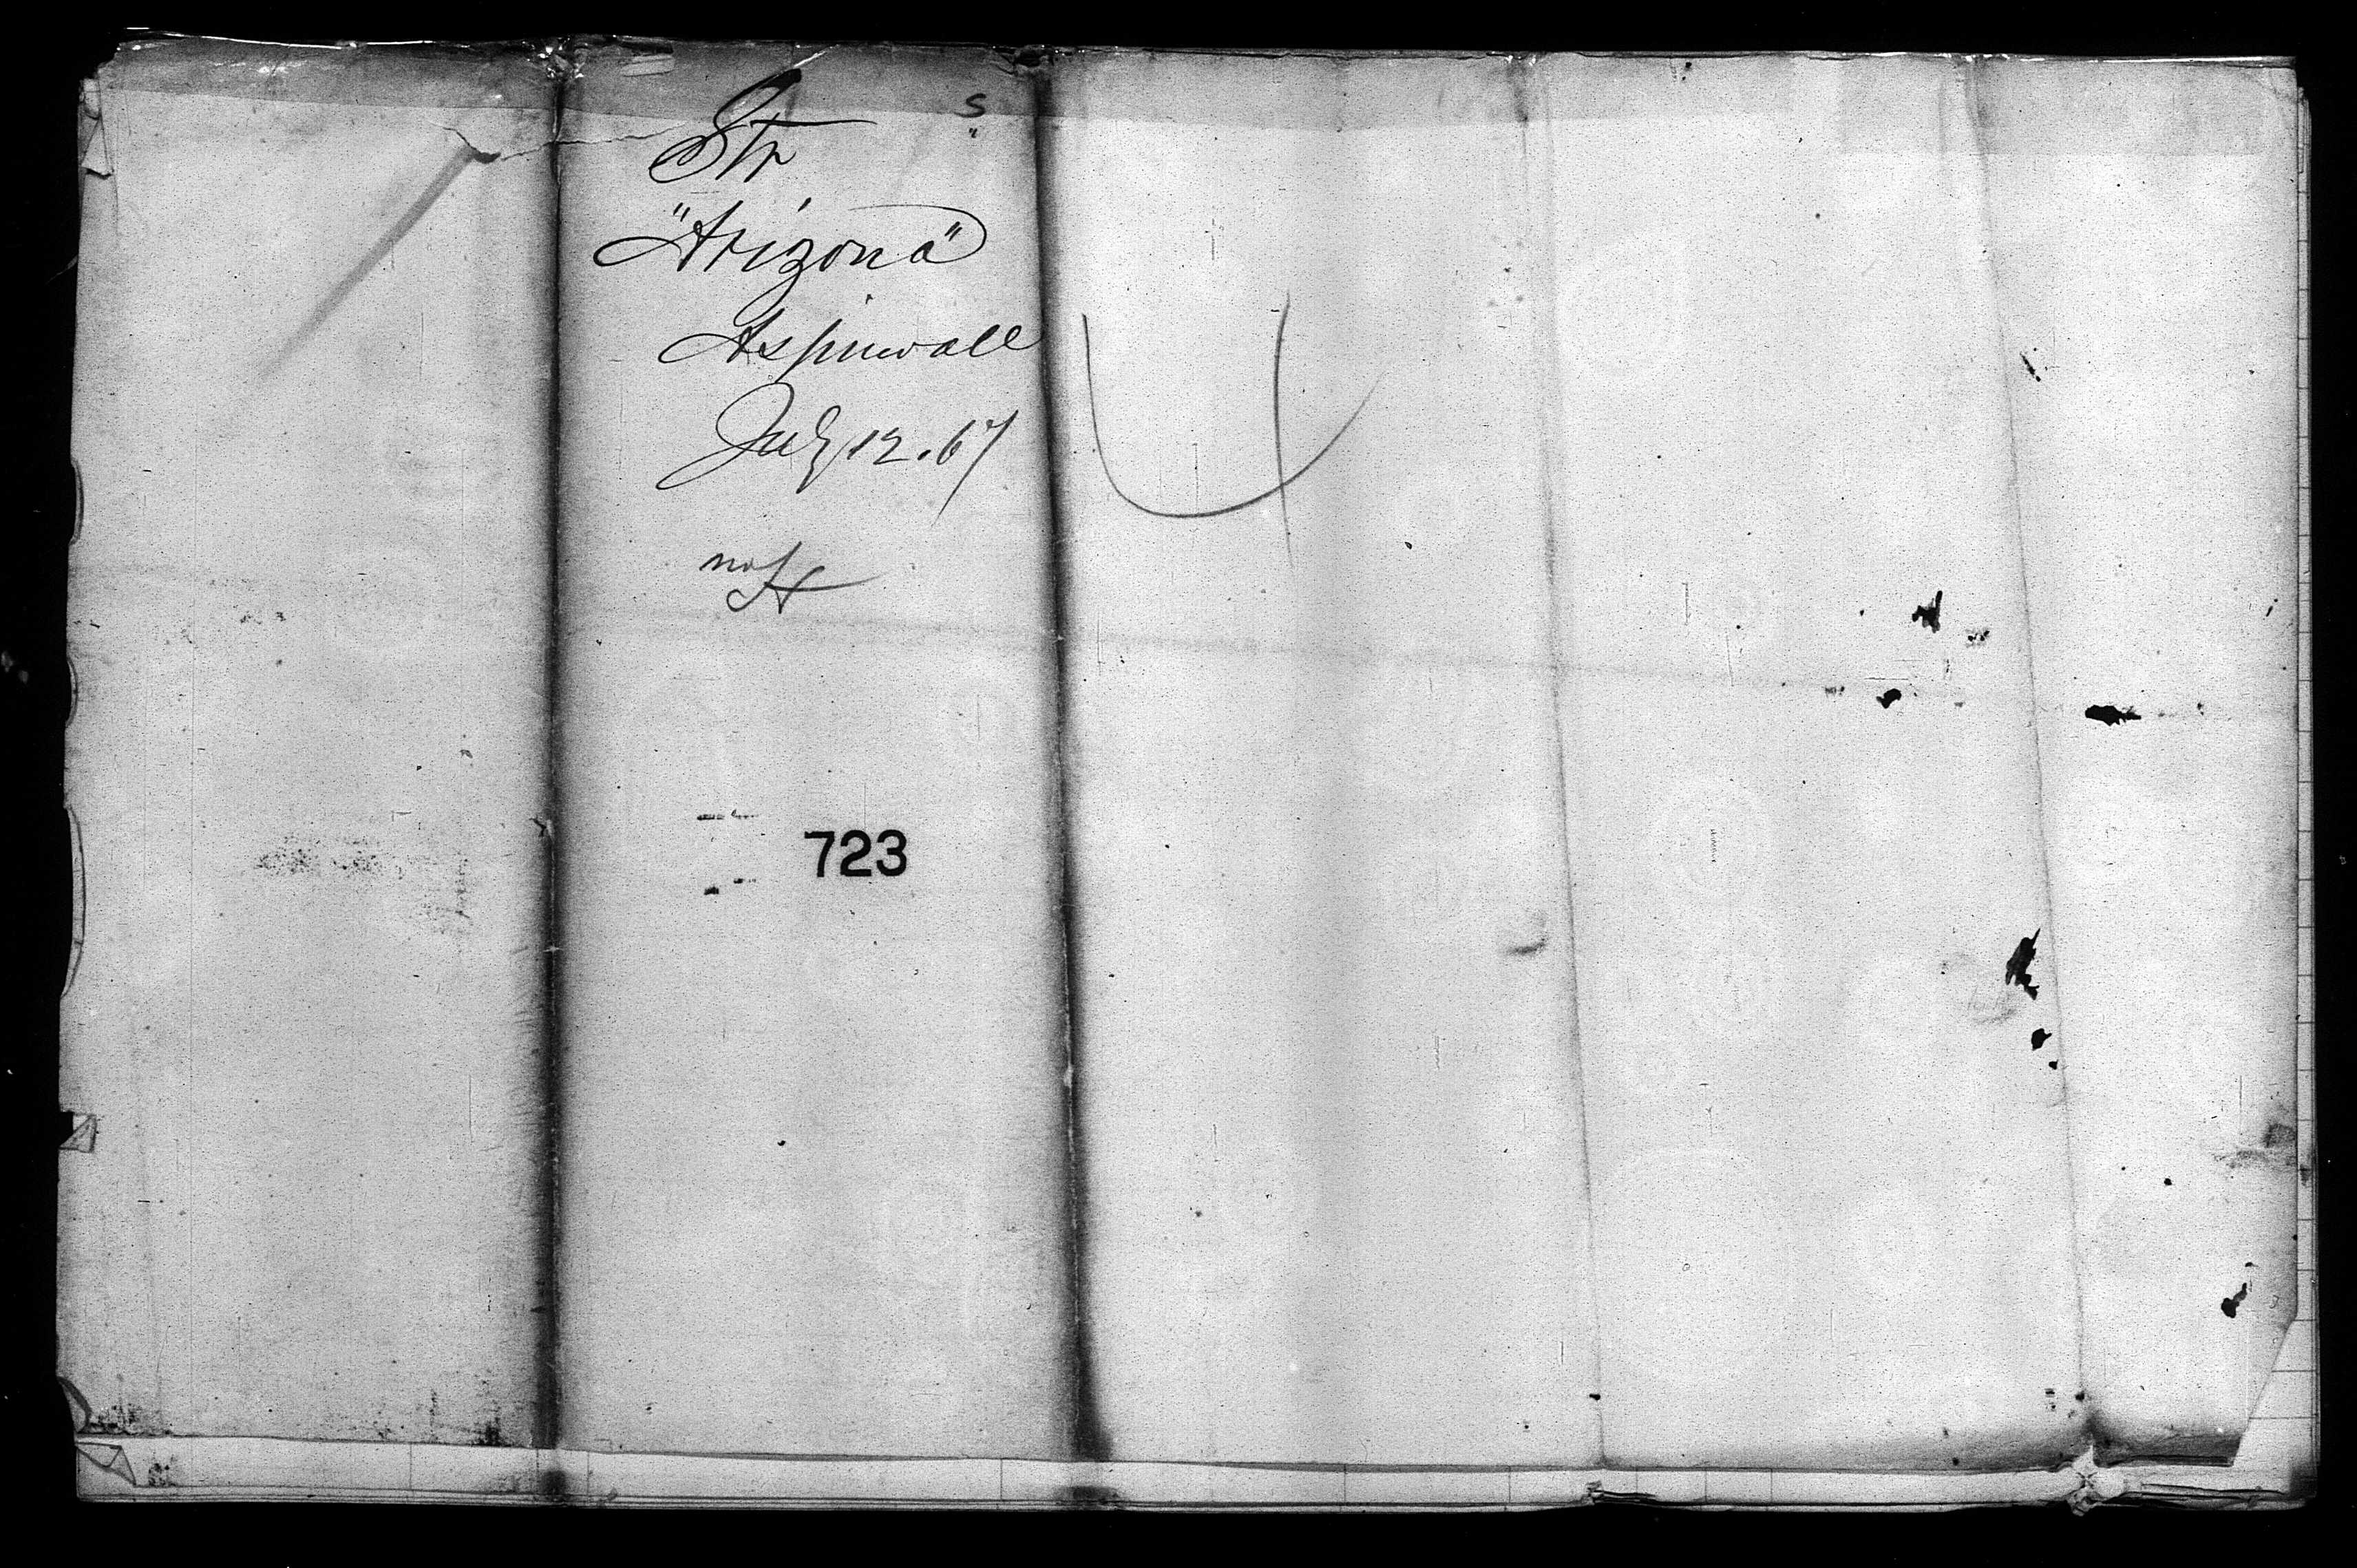 S
"
Str
"Arizona"
Aspinwall
July 12. 67
723